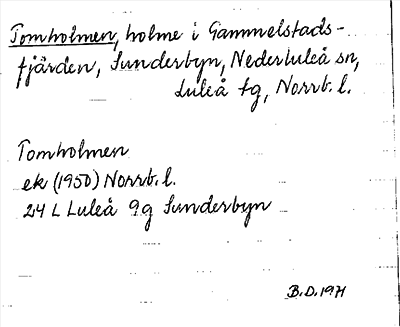 Tomholmen, holme i Gammelstads-
fjärden, Sunderbyn, Nederluleå sn,
Luleå tg, Norrb. l.
Tomholmen
ek (1950) Norrb. l.
24 L Luleå 9g Sunderbyn
B.D. 1971